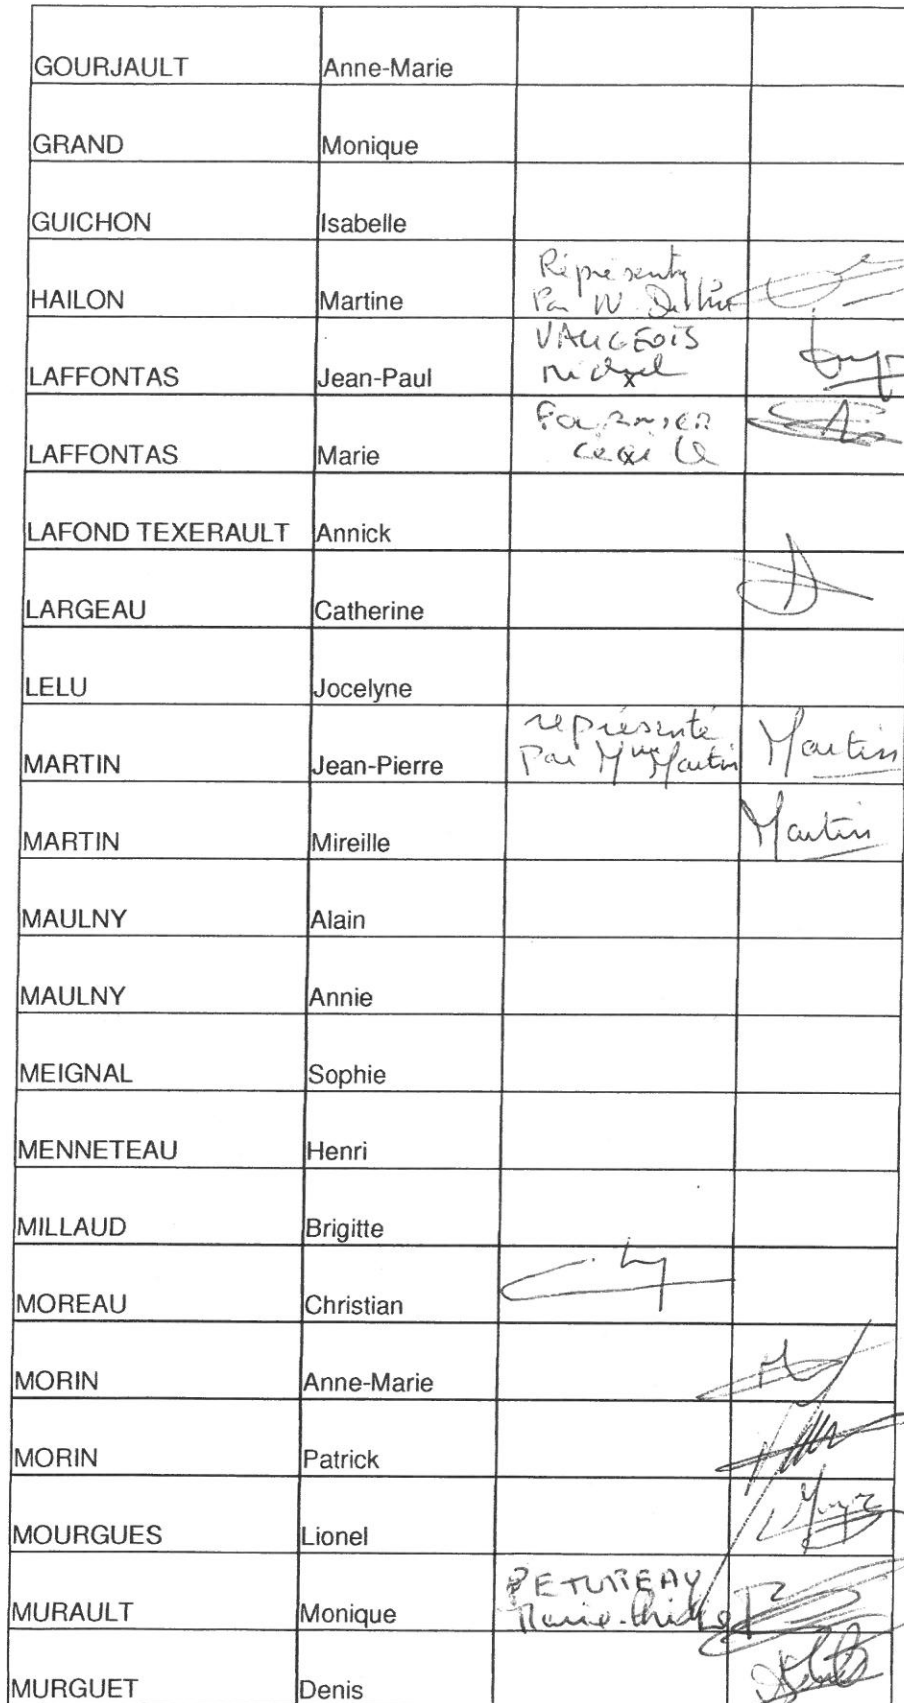 GOURJAULT Anne-Marie
GRAND Monique
GUICHON Isabelle
HAILON Martine Représenté
Par
LAFFONTAS Jean-Paul VAUGEOIS
Michel
LAFFONTAS Marie FOURNIER
Cécile
LAFOND TEXERAULT Annick
LARGEAU Catherine
LELU Jocelyne
MARTIN Jean-Pierre représenté
Par Mme Martin Martin
MARTIN Mireille Martin
MAULNY Alain
MAULNY Annie
MEIGNAL Sophie
MENNETEAU Henri
MILLAUD Brigitte
MOREAU Christian
MORIN Anne-Marie
MORIN Patrick
MOURGUES Lionel
MURAULT Monique PETUREAU
MURGUET Denis